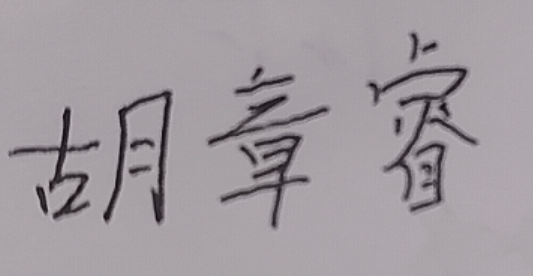 胡章睿